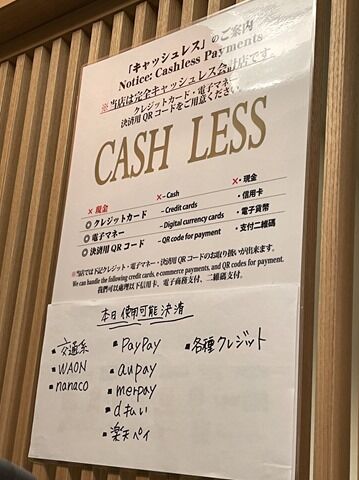 「キャッシュレス」のご案内
Notice: Cashless Payments
※当店は完全キャッシュレス会計店です。
クレジットカード・電子マネー・
決済用QRコードをご用意ください。
CASH LESS
× 現金 ×-Cash ×・現金
◎クレジットカード -Credit cards ・信用卡
◎電子マネー -Digital currency cards ・電子貨幣
◎決済用QRコード -QR code for payment ・支付二維碼
*当店では下記クレジット・電子マネー・決済用QRコードのお取り扱いが出来ます。
We can handle the following credit cards, e-commerce payments, and QR codes for payment.
我們可以處理以下信用卡、電子商務支付、二維碼支付。
本日使用可能決済
・交通系 ・PayPay ・各種クレジット
・WAON ・aupay
・nanaco ・merpay
・d払い
・楽天ペイ